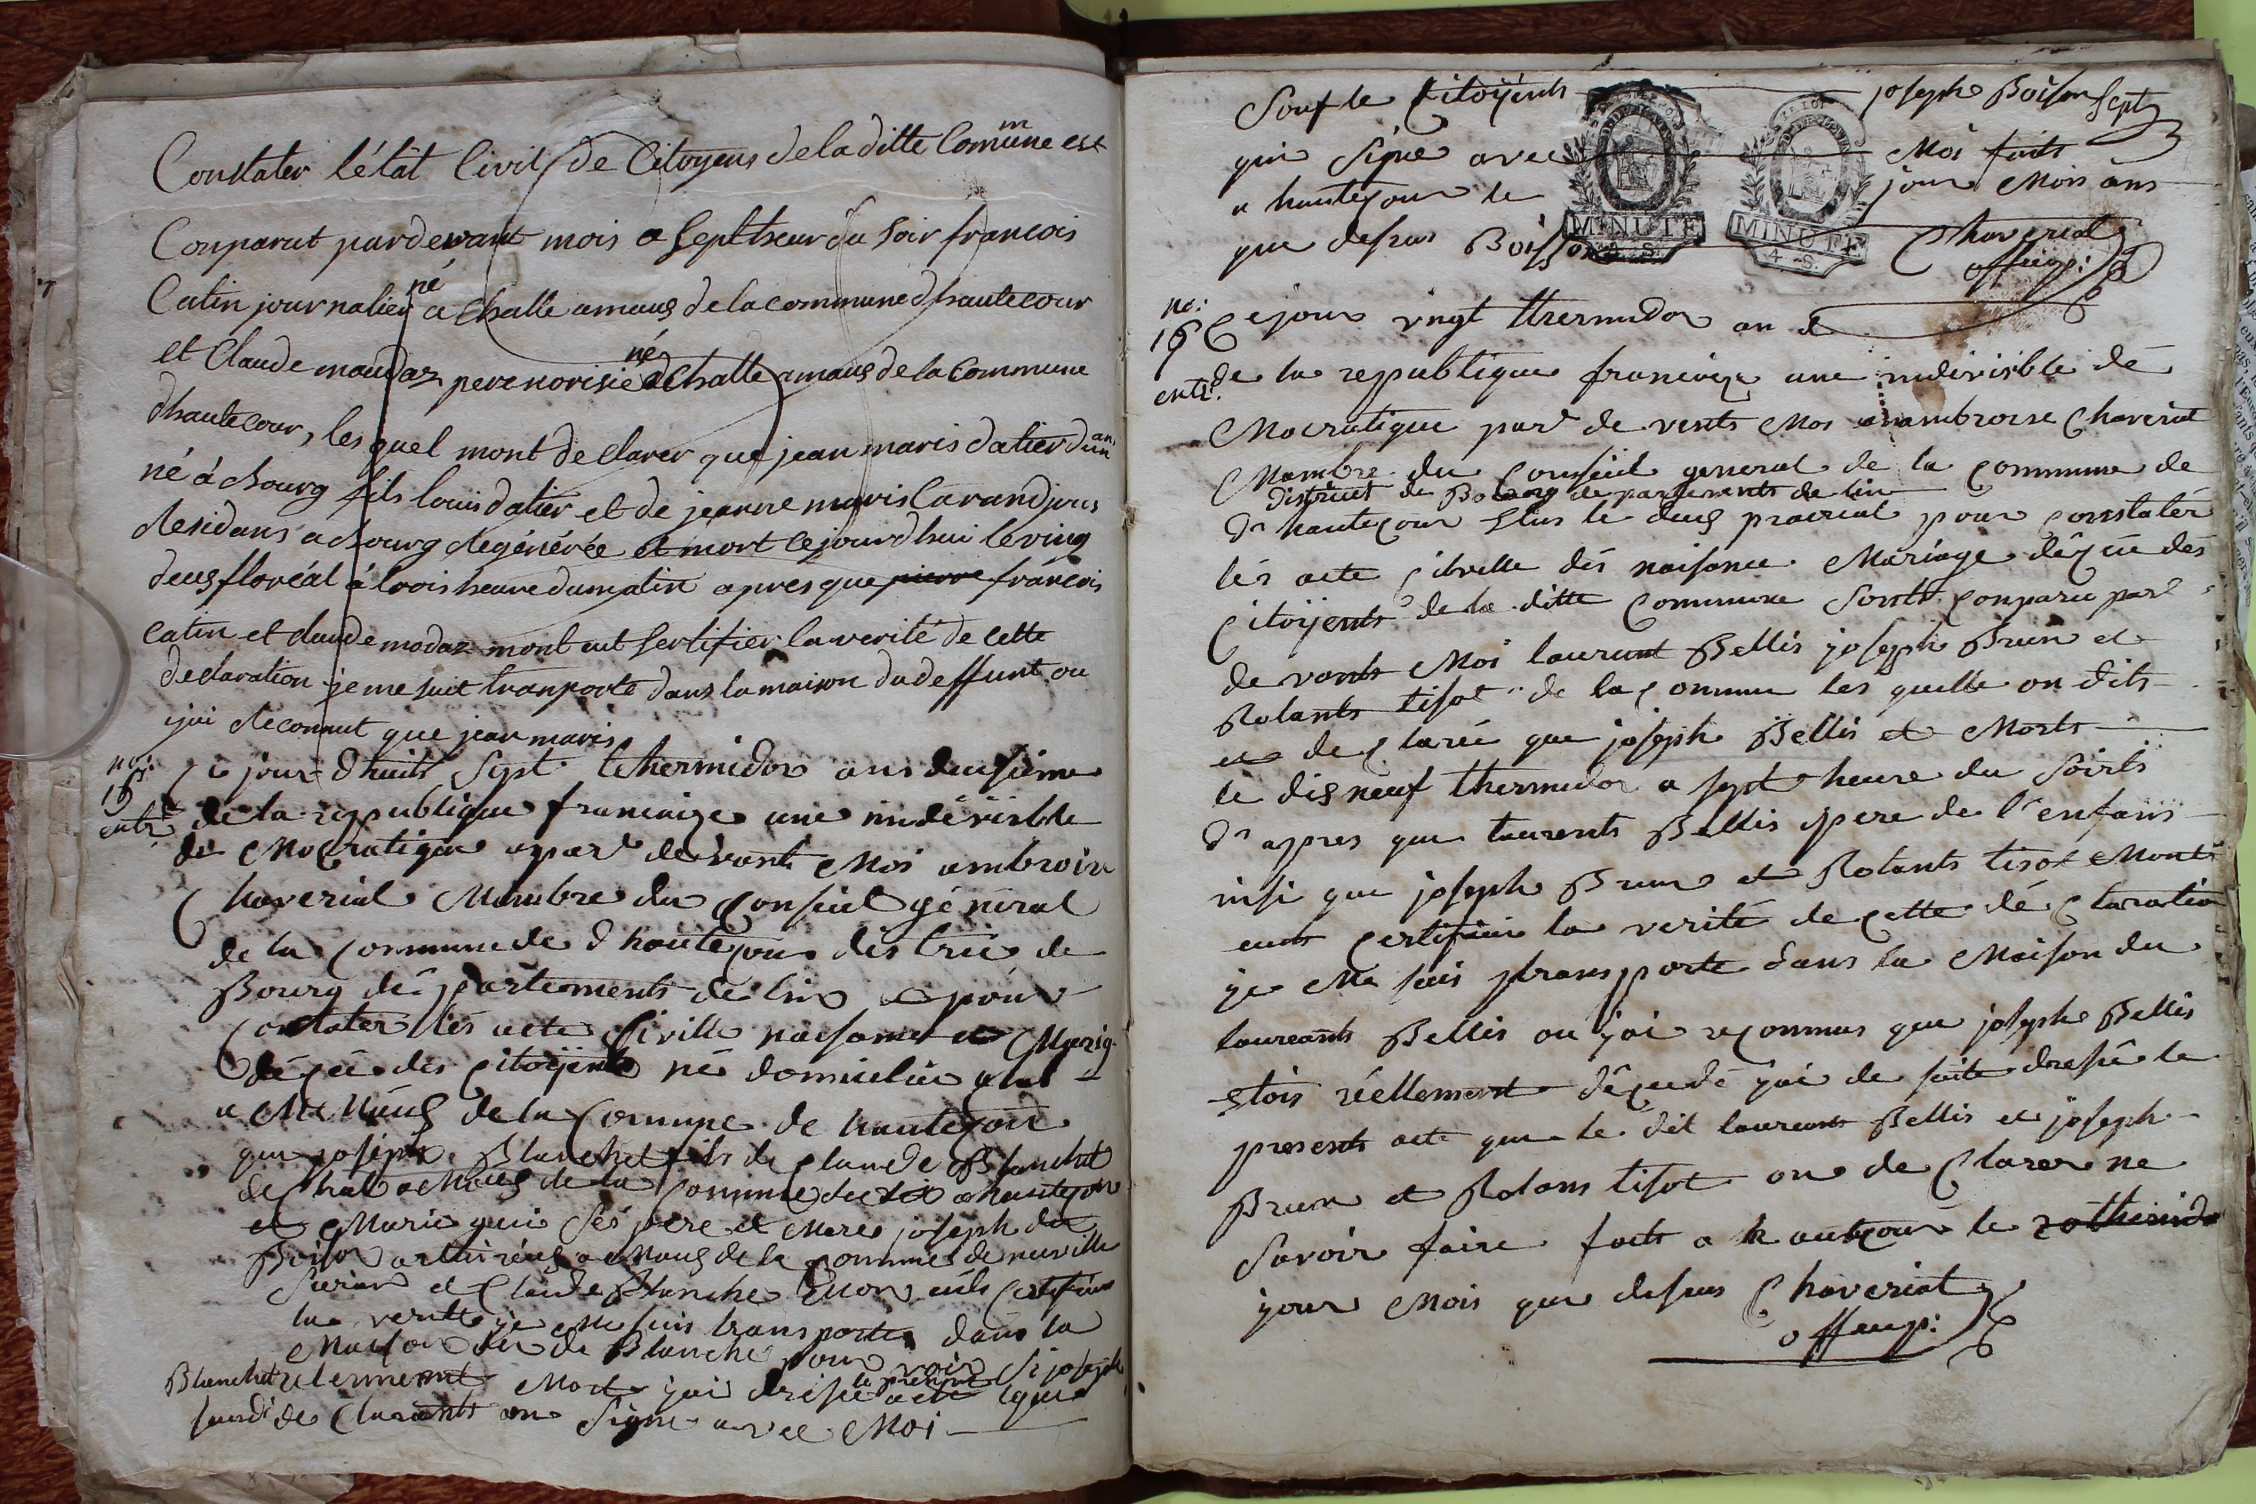 Constater l'état Civil de Citoyens de la ditte Commune est
Comparut pardevant mois a sept heur du soir francois
Catin journalier né a Challe amaus de la commune d'hautecour
et Claude maudaz pere norisié né a Challe amaus de la Commune
d'hautecour, les quel mont declarer que jean maris dalier dun an
né à bourg fils louis dalier et de jeanne maris
residans a bourg et mort ce jourd'hui le ving
deus floréal à trois heure du matin apres que pierre francois
catin et claude modaz mont eut sertifier la verité de cette
declaration je me suit tranporté dans la maison du deffunt ou
jai reconnut que jean maris
no:
15
entr:
Ce jour d'huits sept thermidor ans deusieme
de la republique francaize une indevisible
de Mocratique par devant Moi ambroise
Chaverial Mambre du Conseil général
de la Commune de d'hautecour districe de
Bourg départements de lin pour
Constater les acte Civille naisance et Mariag
décée des Citoyents né domicilié a
a de la Comune de hautecour
que joseph Blanchet fils de Claude Blanchet
de Chal de la Comune de hautecour
et Marie qui ses pere et Mere joseph du
Boison de la Comune de neuville
et Claude Blanche Mon euts Certifier
la verité je Me suis transporter dans la
Maison du de Blanche pour voir Si joseph
Blanchet Mort jai drésé le present acte que
de Clarants on Signe avec Moi
Souf le Citoyents joseph Boison sept
qui Signe avec Moi faits
a hautecour le jour Mois ans
que desus Boisson Chaverial
MINUTE
4. S.
MINUTE
4. S.
off. p:
no:
16
entr:
Ce jour vingt thermidor an 2
de la republique francaize une indivisible dé
Mocratique par de vents Moi anambroise Chaveriat
Mambre du Conseil general de la Commune de
district de Bourg de partements de lin
d'hautecour élus le deus prairial pour Constatér
lés acte Civille dés naisance Mariage décée dés
Citoyents de la ditte Commune Sonts Conparu par
de vants Moi laurent Bellis joseph Brun et
Rolants tisot de la Commune les quelle on dits
et de Claréé que joseph Bellis et Morts
le dis neuf thermidor a sept heure du Soirts
d'appres que laurents Bellis pere de l'enfans
insi que joseph Brun et Rolants tisot Monts
euts Certifier la verité de Cette dé Claration
je Me suis transporte dans la Maison du
laureants Bellis ou jai reconnus que joseph Bellis
étois réellement décédé jai de suite dresée le
presents acte que le dit laurents Bellis et joseph
Brun et Rolans tisot on de Clarer ne
Savoir faire faits a hautcour le 20 thermido
jour Mois que desus Chaveriat
off. p: